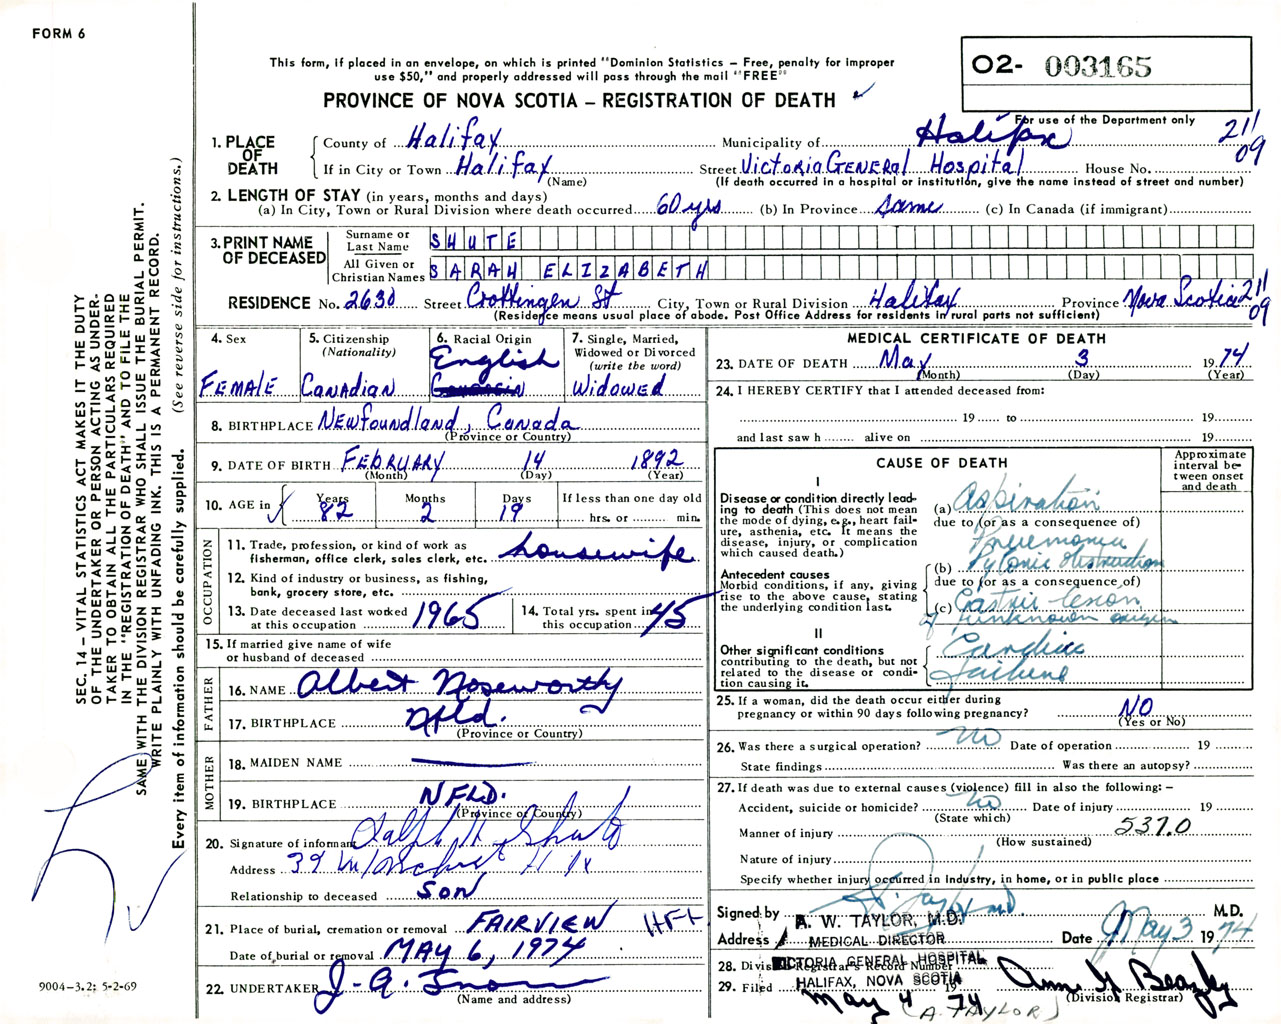 FORM 6
This form, if placed in an envelope, on which is printed "Dominion Statistics – Free, penalty for improper
use $50," and properly addressed will pass through the mail "FREE"
PROVINCE OF NOVA SCOTIA – REGISTRATION OF DEATH
O2- 003165
For use of the Department only
211
09
1. PLACE OF DEATH
County of Halifax Municipality of Halifax
If in City or Town Halifax Street Victoria General Hospital House No.
(Name) (If death occurred in a hospital or institution, give the name instead of street and number)
2. LENGTH OF STAY (in years, months and days)
(a) In City, Town or Rural Division where death occurred 60 yrs (b) In Province Same (c) In Canada (if immigrant)
3. PRINT NAME OF DECEASED
Surname or Last Name SHUTE
All Given or Christian Names SARAH ELIZABETH
RESIDENCE No. 2630 Street St City, Town or Rural Division Halifax Province Nova Scotia 211
09
(Residence means usual place of abode. Post Office Address for residents in rural parts not sufficient)
4. Sex
FEMALE
5. Citizenship
(Nationality)
CANADIAN
6. Racial Origin
English
7. Single, Married,
Widowed or Divorced
(write the word)
WIDOWED
8. BIRTHPLACE Newfoundland, Canada
(Province or Country)
9. DATE OF BIRTH FEBRUARY 14 1892
(Month) (Day) (Year)
10. AGE in
Years Months Days If less than one day old
82 2 19 hrs. or min.
OCCUPATION
11. Trade, profession, or kind of work as
fisherman, office clerk, sales clerk, etc. housewife
12. Kind of industry or business, as fishing,
bank, grocery store, etc.
13. Date deceased last worked
at this occupation 1965
14. Total yrs. spent in
this occupation 45
15. If married give name of wife
or husband of deceased
FATHER
16. NAME Albert Noseworthy
17. BIRTHPLACE Nfld.
(Province or Country)
MOTHER
18. MAIDEN NAME
19. BIRTHPLACE NFLD.
(Province or Country)
20. Signature of informant Ralph H Shute
Address 39
Relationship to deceased SON
21. Place of burial, cremation or removal FAIRVIEW Hfx
Date of burial or removal MAY 6, 1974
22. UNDERTAKER J. A. Snow
(Name and address)
MEDICAL CERTIFICATE OF DEATH
23. DATE OF DEATH May 3 1974
(Month) (Day) (Year)
24. I HEREBY CERTIFY that I attended deceased from:
19 to 19
and last saw h alive on 19
CAUSE OF DEATH
Approximate
interval be-
tween onset
and death
I
Disease or condition directly lead-
ing to death (This does not mean
the mode of dying, e.g., heart fail-
ure, asthenia, etc. It means the
disease, injury, or complication
which caused death.)
(a) Aspiration
due to (or as a consequence of)
Pneumonia
Antecedent causes
Morbid conditions, if any, giving
rise to the above cause, stating
the underlying condition last.
(b) Pyloric obstruction
due to (or as a consequence of)
(c) Gastric lesion
of unknown origin
II
Other significant conditions
contributing to the death, but not
related to the disease or condi-
tion causing it.
Cardiac
failure
25. If a woman, did the death occur either during
pregnancy or within 90 days following pregnancy? NO
(Yes or No)
26. Was there a surgical operation? no Date of operation 19
State findings Was there an autopsy?
27. If death was due to external causes (violence) fill in also the following: –
Accident, suicide or homicide? no Date of injury 19
(State which)
Manner of injury 537.0
(How sustained)
Nature of injury
Specify whether injury occurred in industry, in home, or in public place
Signed by M.D.
A. W. TAYLOR, M.D.
Address Date May 3 1974
MEDICAL DIRECTOR
28. Division Registrar's Record Number
VICTORIA GENERAL HOSPITAL
29. Filed May 4 1974
HALIFAX, NOVA SCOTIA
(Division Registrar)
(A. TAYLOR)
9004-3.2: 5-2-69
SEC. 14 – VITAL STATISTICS ACT MAKES IT THE DUTY
OF THE UNDERTAKER OR PERSON ACTING AS UNDER-
TAKER TO OBTAIN ALL THE PARTICULARS REQUIRED
IN THE "REGISTRATION OF DEATH" AND TO FILE THE
SAME WITH THE DIVISION REGISTRAR WHO SHALL ISSUE THE BURIAL PERMIT.
WRITE PLAINLY WITH UNFADING INK. THIS IS A PERMANENT RECORD.
Every item of information should be carefully supplied. (See reverse side for instructions.)